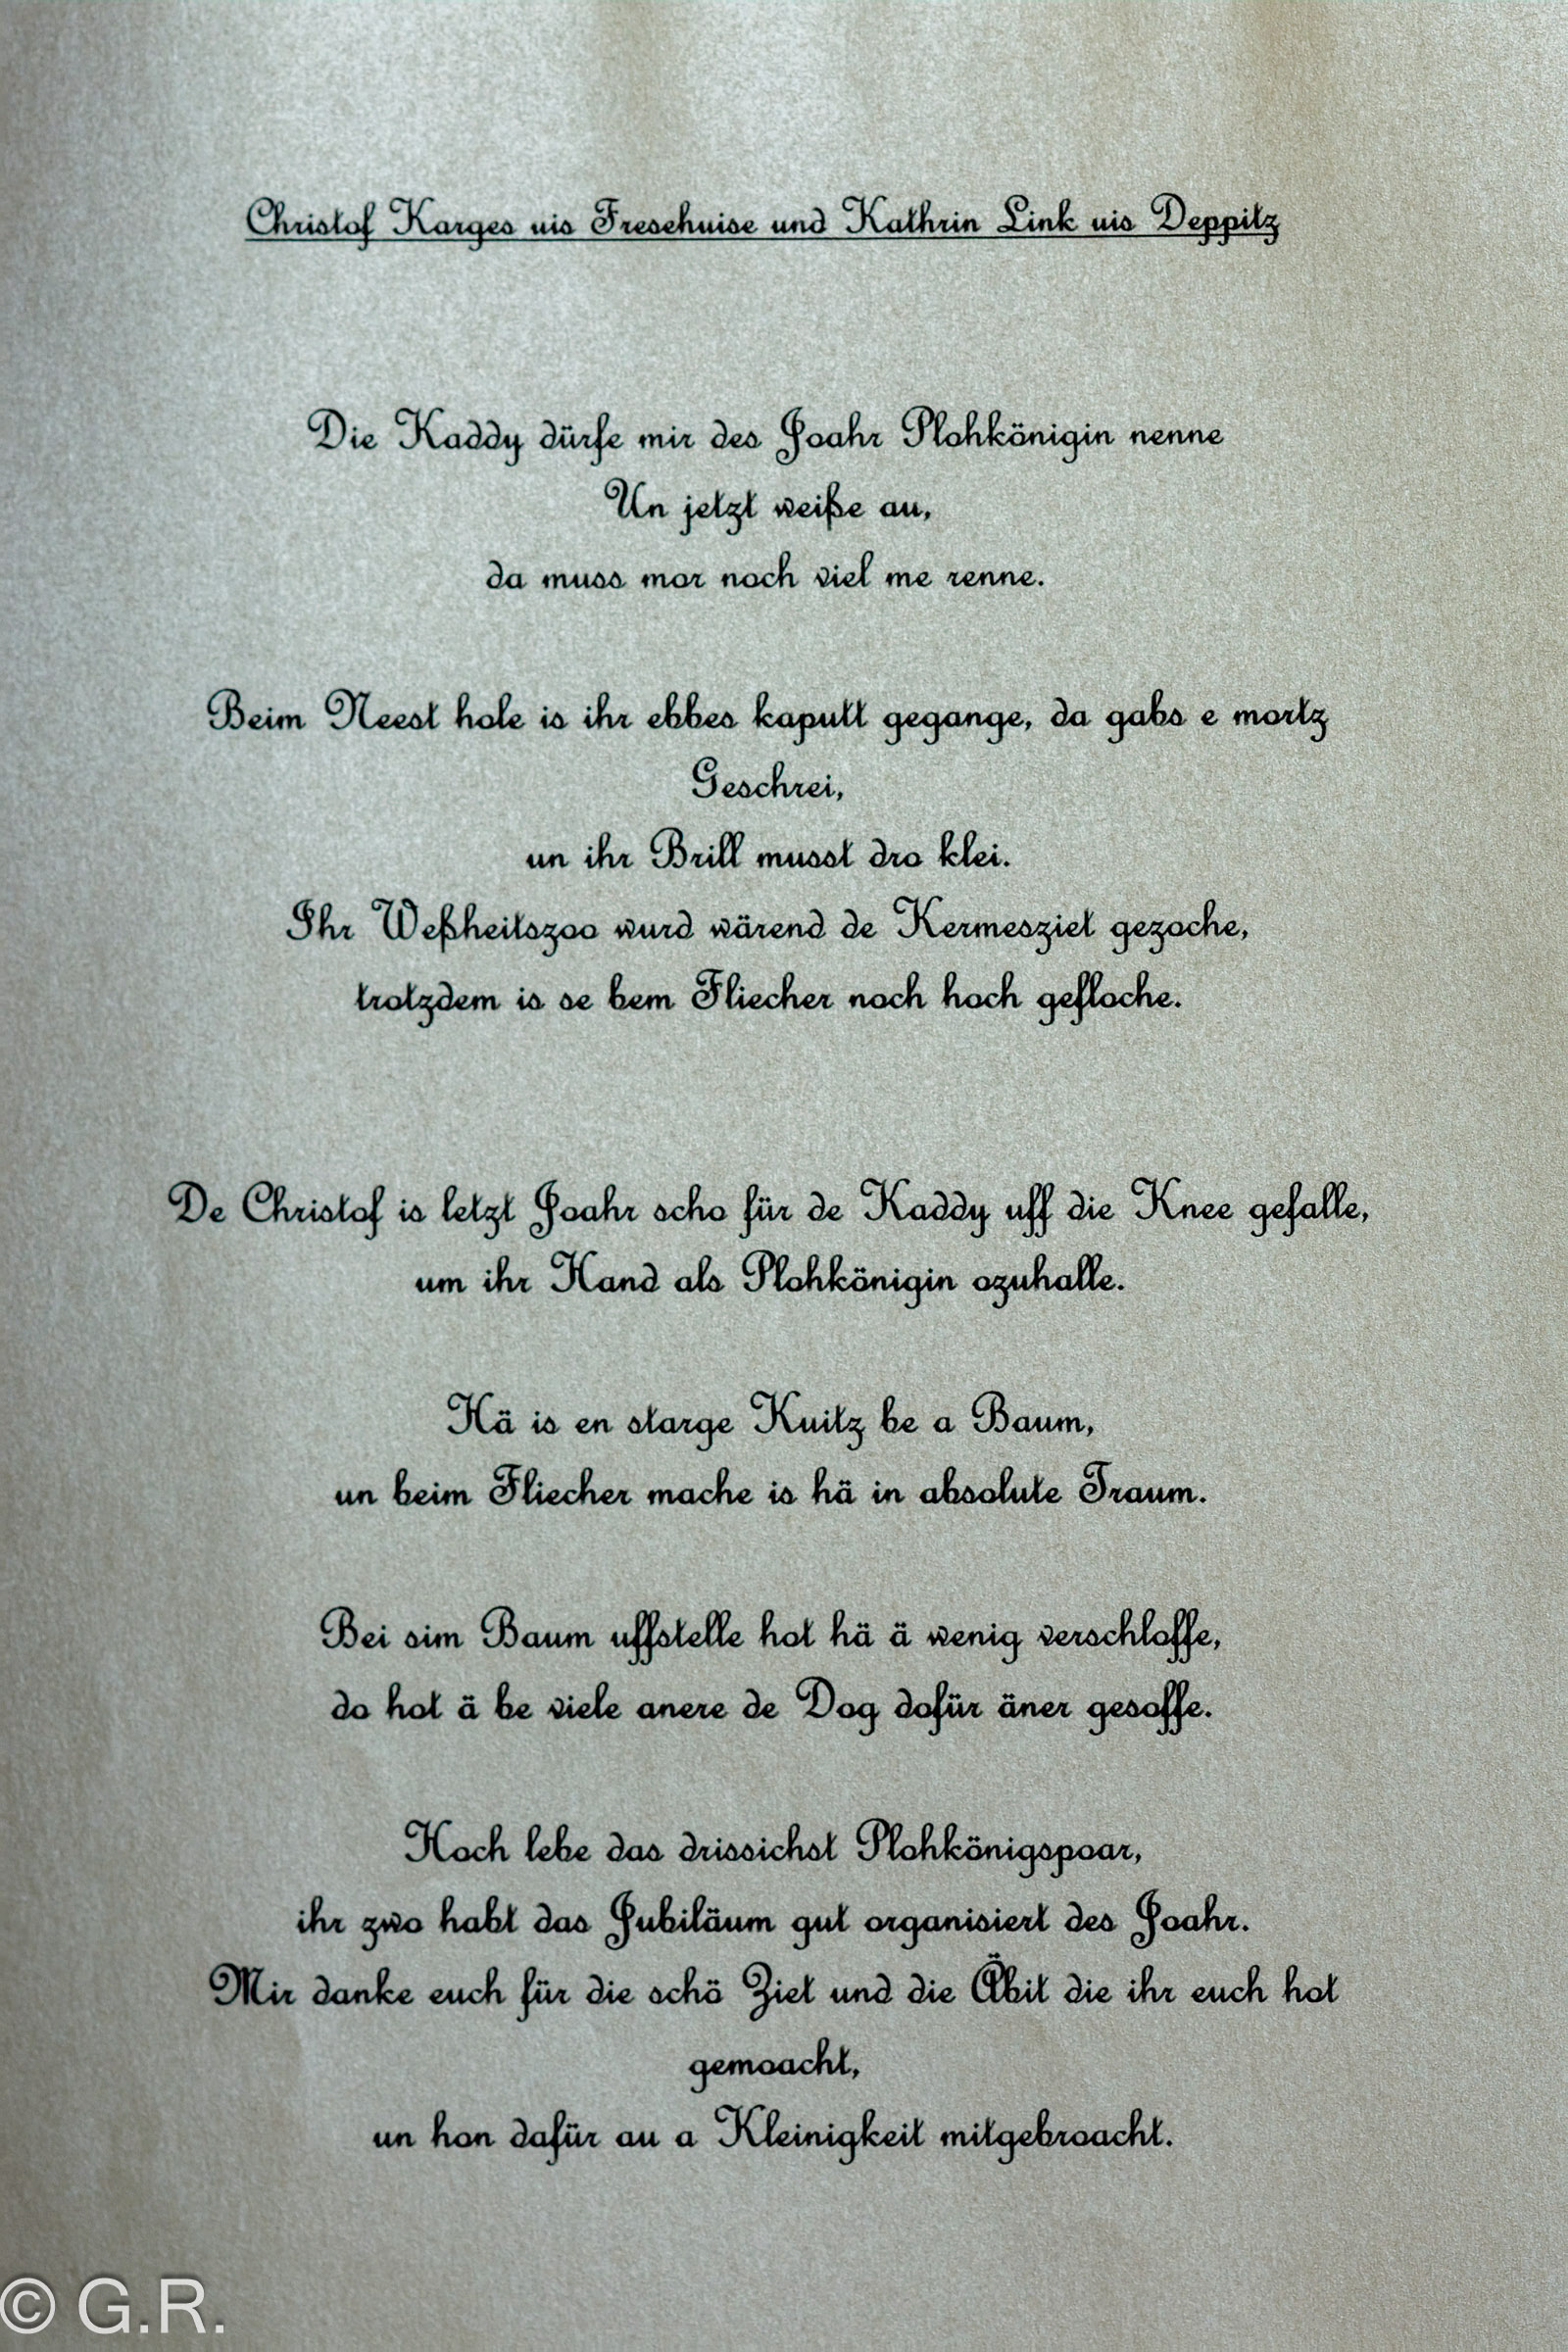 Christof Karges uis Fresehuise und Kathrin Link uis Deppitz
Die Kaddy dürfe mir des Joahr Plohkönigin nenne
Un jetzt weiße au,
da muss mor noch viel me renne.
Beim Neest hole is ihr ebbes kaputt gegange, da gabs e mortz
Geschrei,
un ihr Brill musst dro klei.
Ihr Weßheitszoo wurd wärend de Kermesziet gezoche,
trotzdem is se bem Fliecher noch hoch gefloche.
De Christof is letzt Joahr scho für de Kaddy uff die Knee gefalle,
um ihr Hand als Plohkönigin ozuhalle.
Hä is en starge Kuitz be a Baum,
un beim Fliecher mache is hä in absolute Traum.
Bei sim Baum uffstelle hot hä ä wenig verschloffe,
do hot ä be viele anere de Dog dofür äner gesoffe.
Hoch lebe das drissichst Plohkönigspoar,
ihr zwo habt das Jubiläum gut organisiert des Joahr.
Mir danke euch für die schö Ziet und die Äbit die ihr euch hot
gemoacht,
un hon dafür au a Kleinigkeit mitgebroacht.
© G.R.